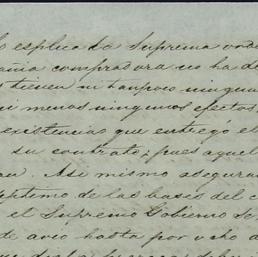 lo esplicado Suprema
añia compradora no ha de
tienen ni tampoco ningun
ni menos ningunos efectos
existencias que entregó el
su contrato; pues aquel
Asi mismo asegura
septimo de las bases del c
el Supremo Gobierno se
de avio hasta por ocho a